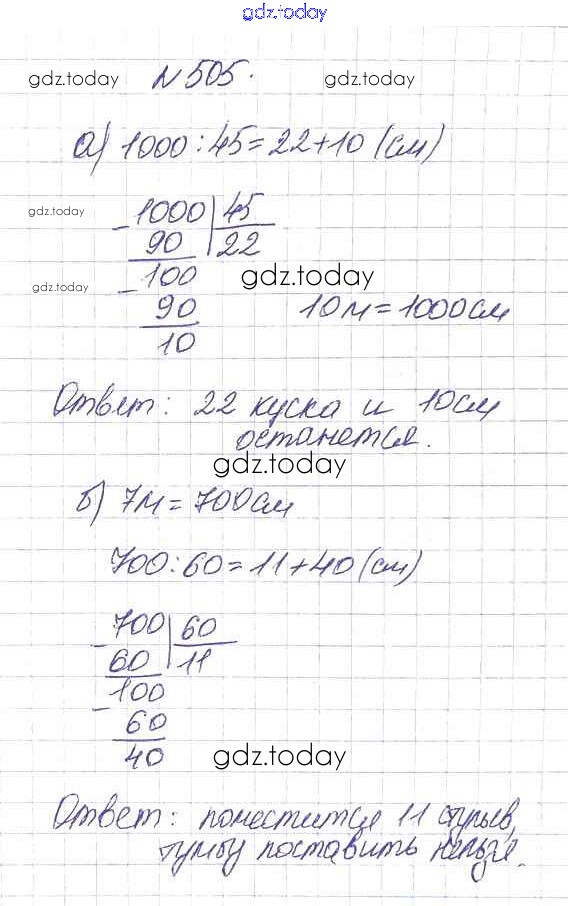 gdz.today
gdz.today
№505.
gdz.today
а) 1000:45=22+10 (см)
gdz.today
- 1000 45
90 22
gdz.today
- 100
gdz.today
90
10м=1000см
10
Ответ: 22 куска и 10см
останется.
gdz.today
б) 7м=700см
700:60=11+40 (см)
- 700 60
60 11
- 100
60
40
gdz.today
Ответ: поместится 11 стульев,
тумбу поставить нельзя.